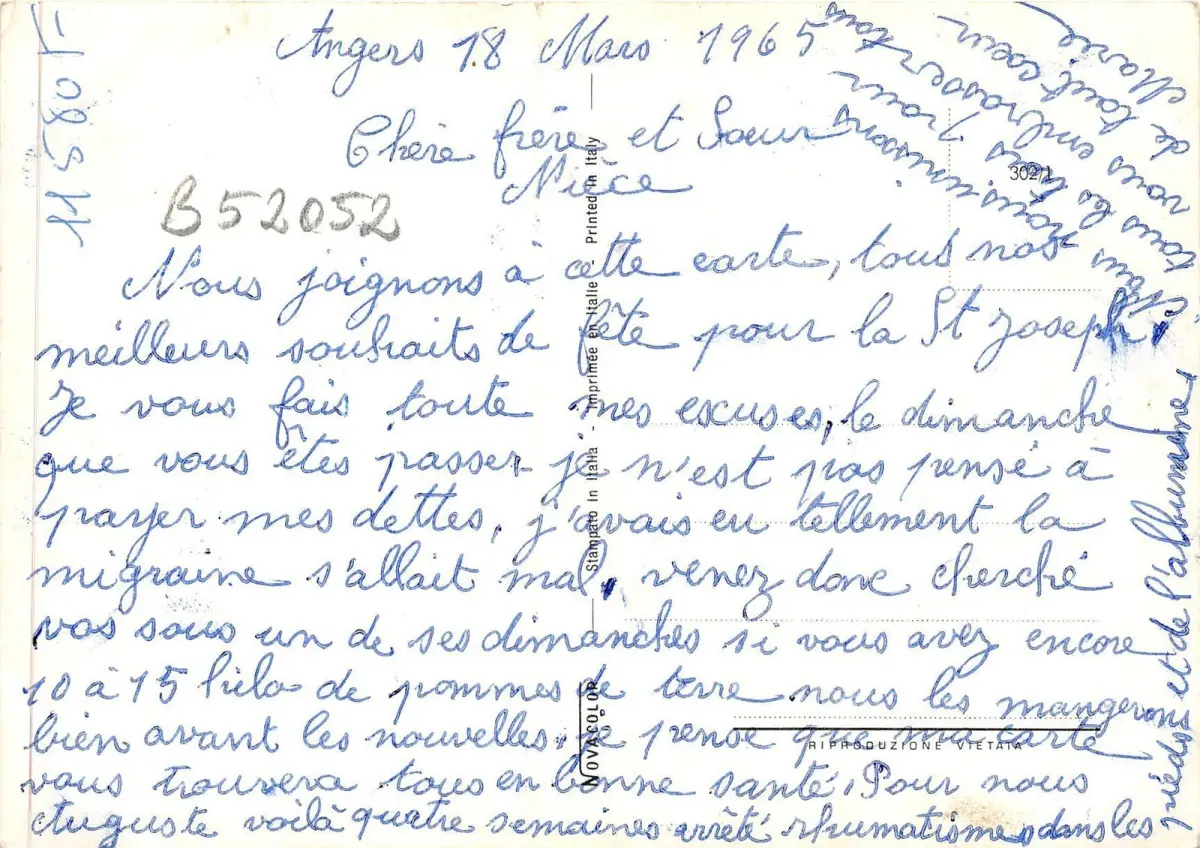 Angers 18 Mars 1965
Chère frère et Soeur
Nièce
B52052
Nous joignons à cette carte, tous nos
meilleurs souhaits de fête pour la St Joseph.
Je vous fais toute mes excuses, le dimanche
que vous êtes passer je n'est pas pensé à
payer mes dettes, j'avais eu tellement la
migraine s'allait mal, venez donc cherché
vos sous un de ses dimanches si vous avez encore
10 à 15 kilo de pommes de terre nous les mangerons
bien avant les nouvelles, je pense que ma carte
vous trouvera tous en bonne santé. Pour nous
Auguste voilà quatre semaines arrêté rhumatismes dans les
pieds et de l'albumine
Nous nous unissons
tous les trois pour
vous embrasser tous
de tout coeur
Marie
11580
302/1
Stampato in Italia - Imprimée en Italie - Printed in Italy
NOVACOLOR
RIPRODUZIONE VIETATA